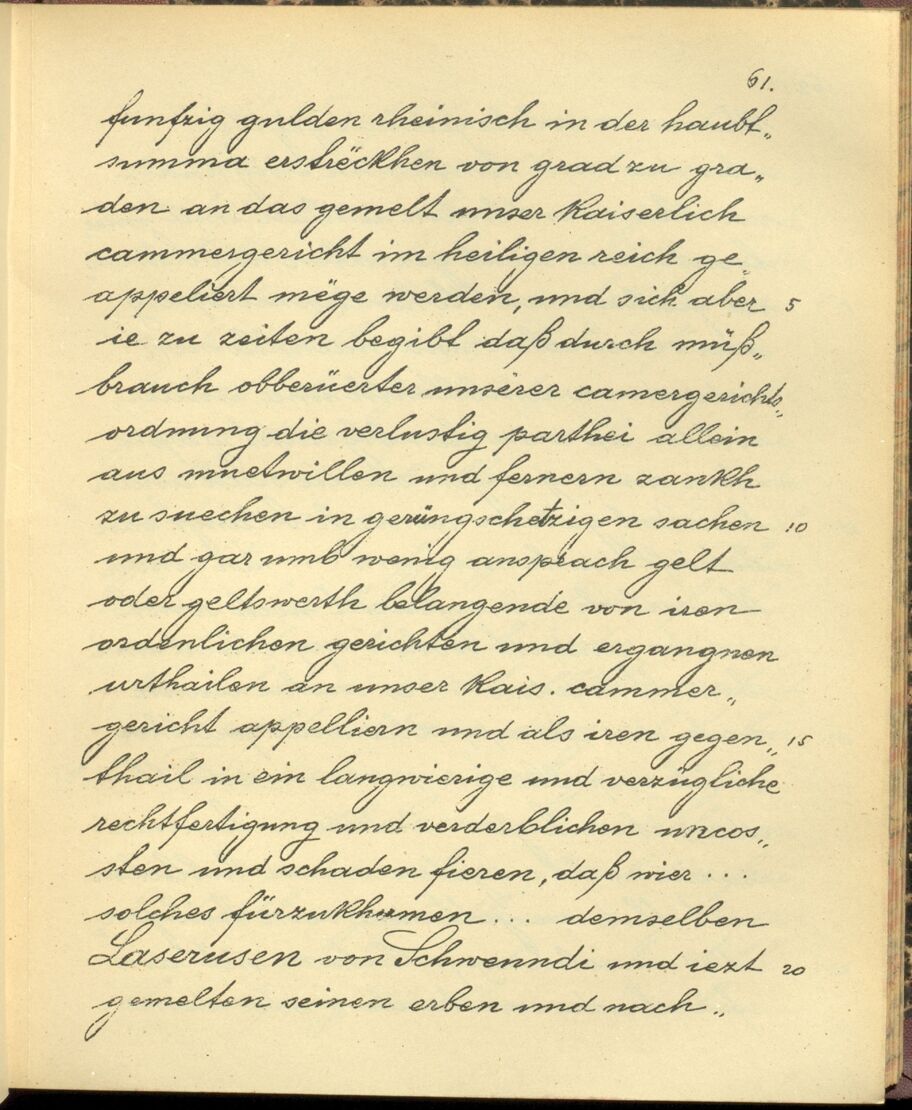 61.
funfzig gulden rheinisch in der haubt„
summa erströckhen von grad zu gra„
den an das gemelt unser Kaiserlich
cammergericht im heiligen reich ge„
appeliert mëge werden, und sich aber 5
ie zu zeiten begibt daß durch müß„
brauch obberüerter unserer camergerichts„
ordnung die verlustig parthei allein
aus muetwillen und fernern zankh
zu suechen in gerüngschetzigen sachen 10
und gar umb wenig ansprach gelt
oder geltswerth belangende von iren
ordenlichen gerichten und ergangnen
urthailen an unser Kais. cammer„
gericht appelliern und als iren gegen„ 15
thail in ein langwierige und verzügliche
rechtfertigung und verderblichen uncos„
sten und schaden fieren, daß wier ...
solches fürzukhumen ... demselben
Laserusen von Schwenndi und iezt 20
gemelten seinen erben und nach„